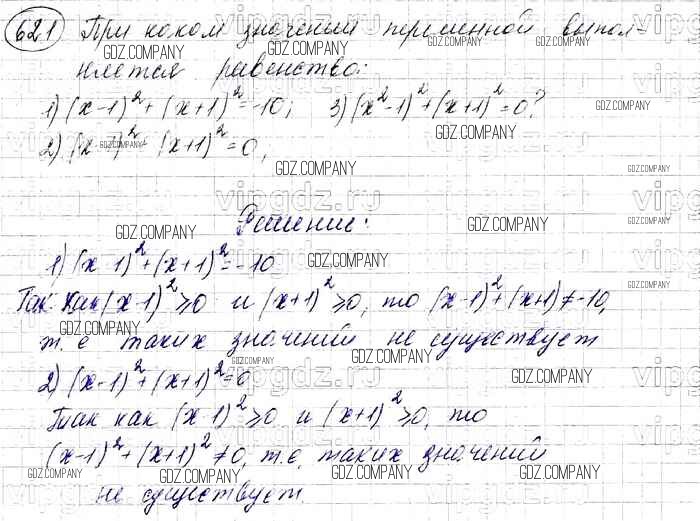 621 При каком значении переменной выпол-
няется равенство:
1) (x-1)²+(x+1)²=-10; 3) (x²-1)²+(x+1)²=0?
2) (x-1)²+(x+1)²=0;
Решение:
1) (x-1)²+(x+1)²=-10
Так как (x-1)²≥0 и (x+1)²≥0, то (x-1)²+(x+1)≠-10,
т.е таких значений не существует
2) (x-1)²+(x+1)²=0
Так как (x-1)²≥0 и (x+1)²≥0, то
(x-1)²+(x+1)²≠0, т.е, таких значений
не существует.
GDZ.COMPANY
vipgdz.ru